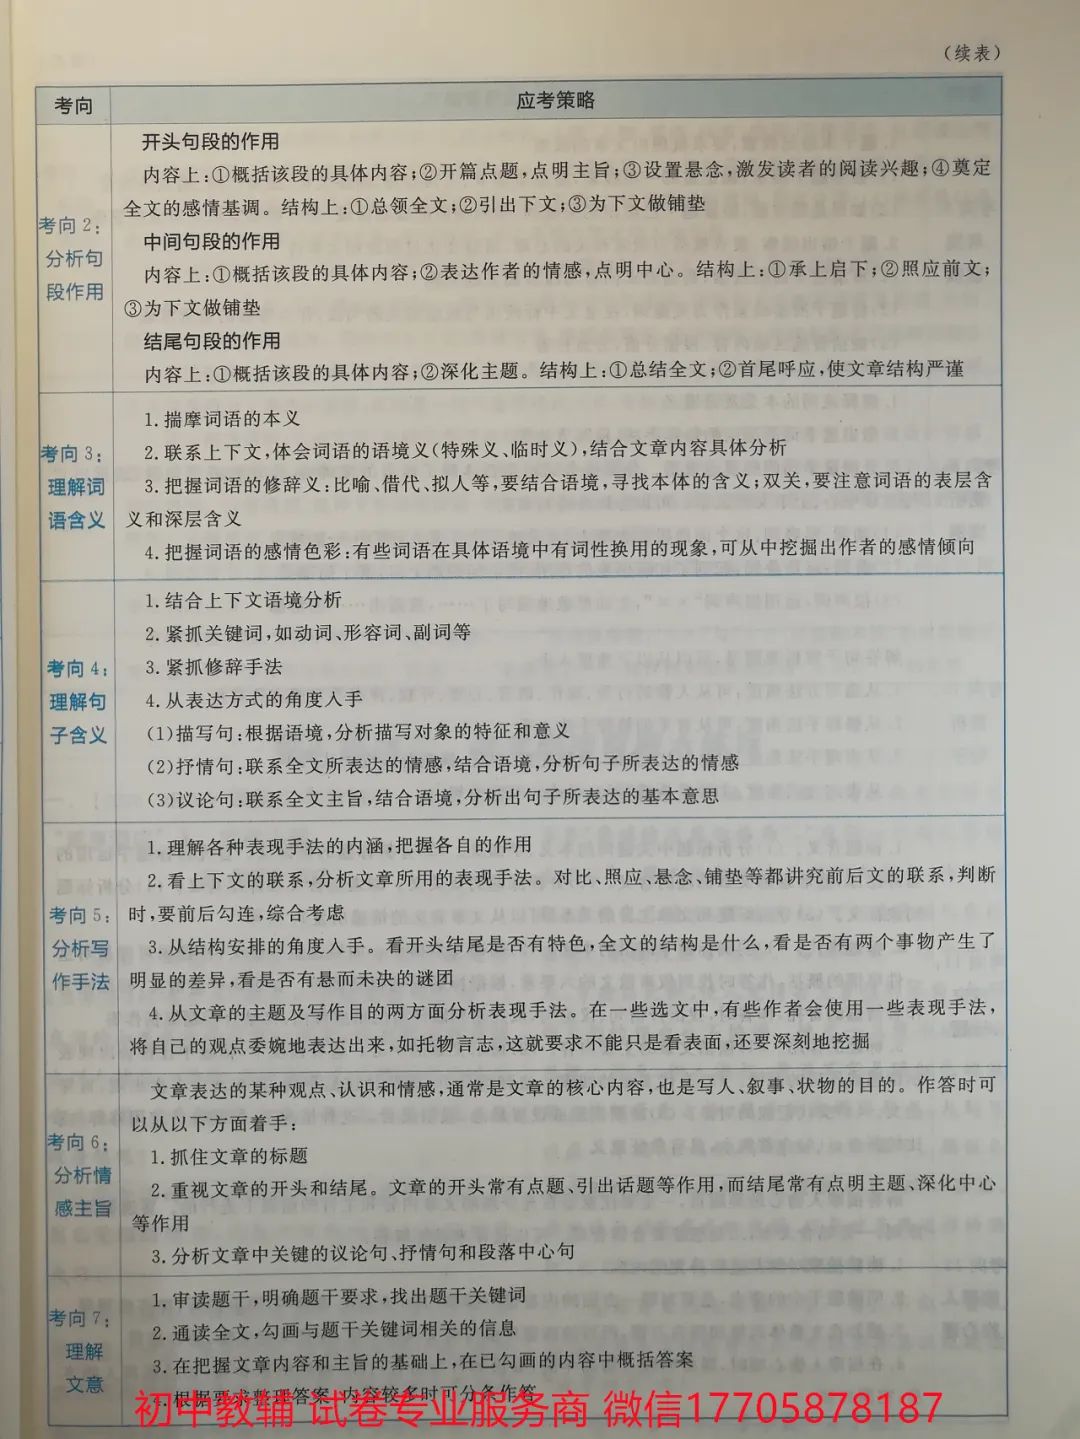 （续表）
考向
应考策略
考向2：
分析句
段作用
开头句段的作用
内容上：①概括该段的具体内容；②开篇点题，点明主旨；③设置悬念，激发读者的阅读兴趣；④奠定
全文的感情基调。结构上：①总领全文；②引出下文；③为下文做铺垫
中间句段的作用
内容上：①概括该段的具体内容；②表达作者的情感，点明中心。结构上：①承上启下；②照应前文；
③为下文做铺垫
结尾句段的作用
内容上：①概括该段的具体内容；②深化主题。结构上：①总结全文；②首尾呼应，使文章结构严谨
考向3：
理解词
语含义
1.揣摩词语的本义
2.联系上下文，体会词语的语境义（特殊义、临时义），结合文章内容具体分析
3.把握词语的修辞义：比喻、借代、拟人等，要结合语境，寻找本体的含义；双关，要注意词语的表层含
义和深层含义
4.把握词语的感情色彩：有些词语在具体语境中有词性换用的现象，可从中挖掘出作者的感情倾向
考向4：
理解句
子含义
1.结合上下文语境分析
2.紧抓关键词，如动词、形容词、副词等
3.紧抓修辞手法
4.从表达方式的角度入手
（1）描写句：根据语境，分析描写对象的特征和意义
（2）抒情句：联系全文所表达的情感，结合语境，分析句子所表达的情感
（3）议论句：联系全文主旨，结合语境，分析出句子所表达的基本意思
考向5：
分析写
作手法
1.理解各种表现手法的内涵，把握各自的作用
2.看上下文的联系，分析文章所用的表现手法。对比、照应、悬念、铺垫等都讲究前后文的联系，判断
时，要前后勾连，综合考虑
3.从结构安排的角度入手。看开头结尾是否有特色，全文的结构是什么，看是否有两个事物产生了
明显的差异，看是否有悬而未决的谜团
4.从文章的主题及写作目的两方面分析表现手法。在一些选文中，有些作者会使用一些表现手法，
将自己的观点委婉地表达出来，如托物言志，这就要求不能只是看表面，还要深刻地挖掘
考向6：
分析情
感主旨
文章表达的某种观点、认识和情感，通常是文章的核心内容，也是写人、叙事、状物的目的。作答时可
以从以下方面着手：
1.抓住文章的标题
2.重视文章的开头和结尾。文章的开头常有点题、引出话题等作用，而结尾常有点明主题、深化中心
等作用
3.分析文章中关键的议论句、抒情句和段落中心句
考向7：
理解
文意
1.审读题干，明确题干要求，找出题干关键词
2.通读全文，勾画与题干关键词相关的信息
3.在把握文章内容和主旨的基础上，在已勾画的内容中概括答案
4.根据要求整理答案，内容较多时可分条作答
初中教辅 试卷专业服务商 微信17705878187